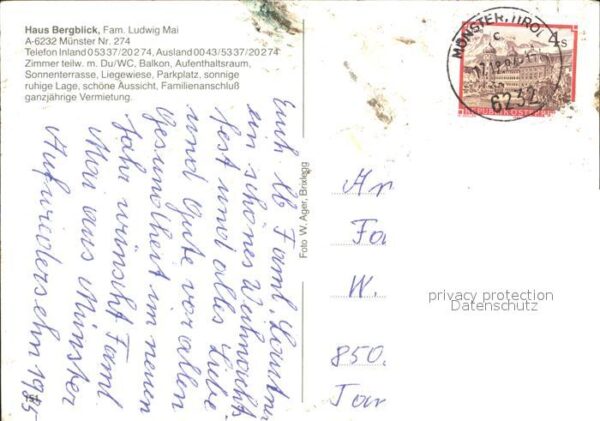 Haus Bergblick, Fam. Ludwig Mai
A-6232 Münster Nr. 274
Telefon Inland 0 53 37/20 2 74, Ausland 00 43/53 37/20 2 74
Zimmer teilw. m. Du/WC, Balkon, Aufenthaltsraum,
Sonnenterrasse, Liegewiese, Parkplatz, sonnige
ruhige Lage, schöne Aussicht, Familienanschluß
ganzjährige Vermietung.
Foto W. Ager, Brixlegg
MÜNSTER, TIROL
c
6232
4 S
REPUBLIK ÖSTERREICH
Faml.
ein schönes Weihnachts
fest und alles Liebe
und Gute vor allem
Gesundheit im neuen
Jahr wünscht Faml.
Mai aus Münster
Aufwiedersehn 1985
An
Fa
W.
850.
privacy protection
Datenschutz
151